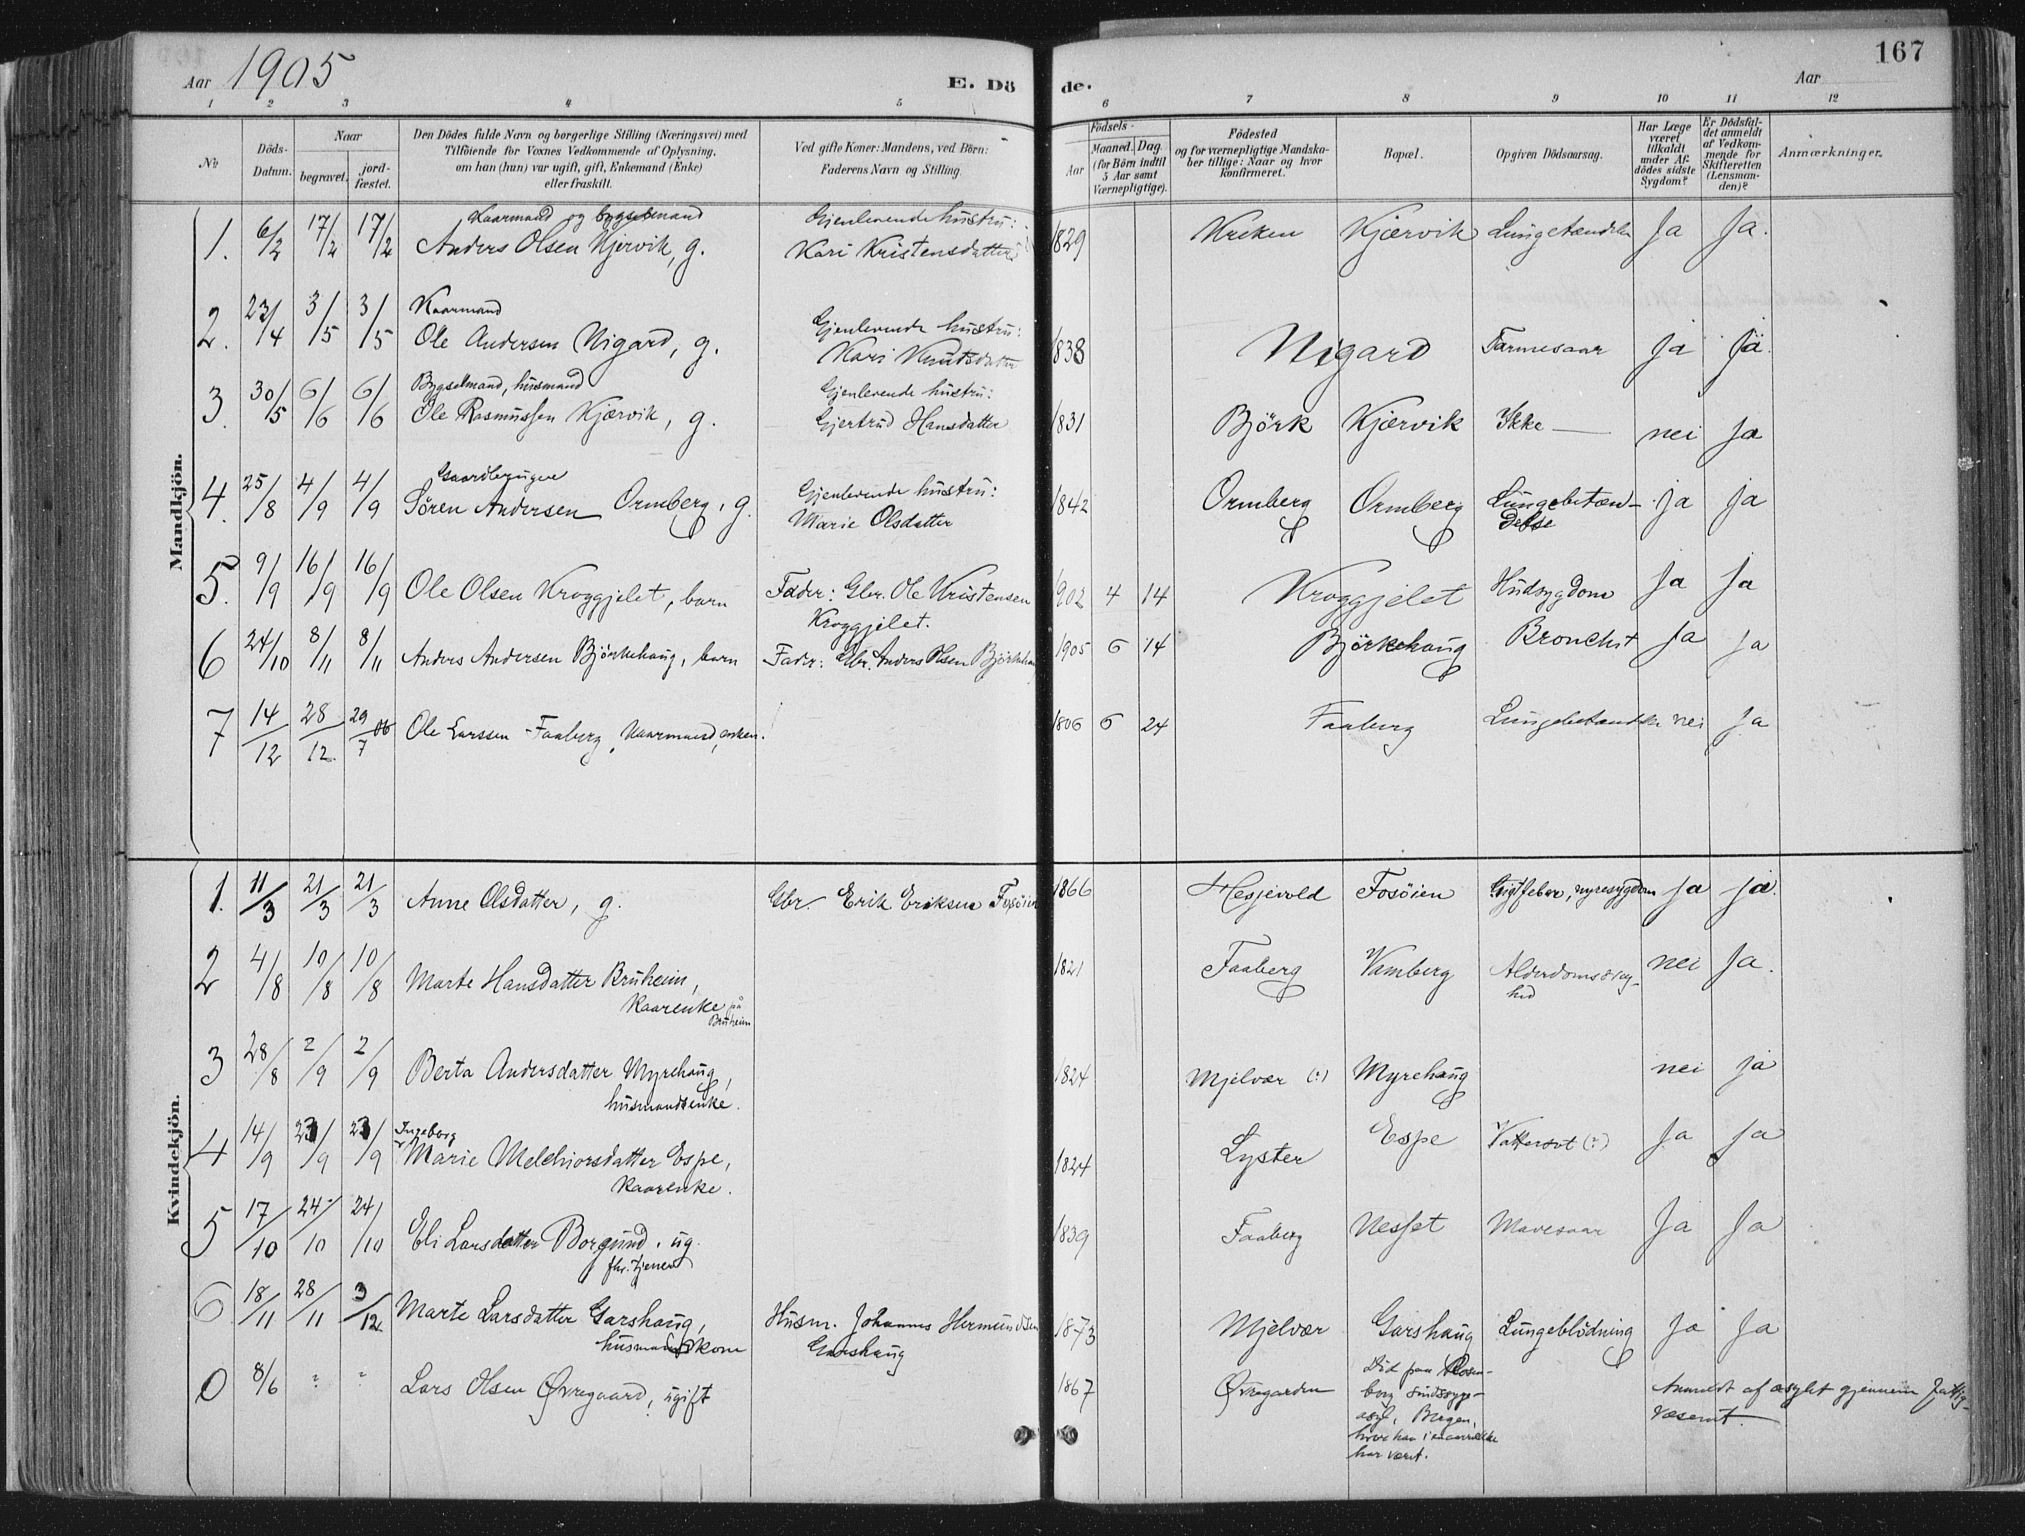 Aar 1905 E. Dö de. Aar 167
1 2 3 4 5 6 7 8 9 10 11 12
No Döds-Datum. Naar begravet. jord-fæstet. Den Dödes fulde Navn og borgerlige Stilling (Næringsvei) med Tilföiende for Voxnes Vedkommende af Oplysning, om han (hun) var ugift, gift, Enkemand (Enke) eller fraskilt. Ved gifte Koner: Mandens, ved Börn: Faderens Navn og Stilling. Födsels- Aar Maaned. Dag. (for Börn indtil 5 Aar samt Værnepligtige). Födested og for værnepligtige Mandskaber tillige: Naar og hvor Konfirmeret. Bopæl. Opgiven Dödsaarsag. Har Læge været tilkaldt under Afdödes sidste Sygdom? Er Dödsfaldet anmeldt af Vedkommende for Skifteretten (Lensmanden)? Anmærkninger.
Mandkjön.
Kaarmand og bygselmand Gjenlevende hustru:
1. 6/2 17/2 17/2 Anders Olsen Kjervik, g. Kari Kristensdatter 1829 Kreken Kjærvik Ja Ja.
Kaarmand Gjenlevende hustru:
2. 23/4 3/5 3/5 Ole Andersen Nigard, g. Kari Knutsdatter 1838 Nigard Tarmesaar Ja Ja.
Bygselmand, husmand Gjenlevende hustru:
3. 30/5 6/6 6/6 Ole Rasmussen Kjærvik, g. Gjertrud Hansdatter 1831 Björk Kjærvik Ikke — nei Ja
Gaardbruger Gjenlevende hustru:
4. 25/8 4/9 4/9 Sören Andersen Ormberg, g. Marie Olsdatter 1842 Ormberg Ormberg Lungebetæn-delse ja ja
5. 9/9 16/9 16/9 Ole Olsen Kroggjelet, barn Fader: Gbr. Ole Kristensen 1902 4 14 Kroggjelet Hudsygdom Ja Ja
Kroggjelet.
6 24/10 8/11 8/11 Anders Andersen Björkehaug, barn Fader: Gbr. Anders Olsen Björkehau 1905 6 14 Björkehaug Bronchit Ja Ja
7 14/12 28/12 29/7 06 Ole Larssen Faaberg, Kaarmand, enkem. 1806 6 24 Faaberg nei Ja
Kvindekjön.
1. 11/3 21/3 21/3 Anne Olsdatter, g. Gbr. Erik Eriksen Fosöien 1866 Hesjevold Fosöien Gigtfeber, nyresygdom Ja ja.
2 4/8 10/8 10/8 Marte Hansdatter Bruheim, 1821 Faaberg Vamberg nei Ja.
Kaarenke på
Bruheim
3 28/8 2/9 2/9 Berta Andersdatter Myrehaug, 1824 Mjelvær (?) Myrehaug nei ja
husmandsenke.
Ingeborg
4 14/9 23/9 23/9 Marie Melchiorsdatter Espe, 1824 Lyster Espe Vattersot (?) Ja Ja
Kaarenke.
5 17/10 24/10 24/10 Eli Larsdatter Borgund, ug. 1839 Faaberg Nesset Mavesaar Ja Ja
fhv. tjener
6 18/11 28/11 3/12 Marte Larsdatter Garshaug, Husm. Johannes Hermundsen 1873 Mjelvær Garshaug Lungeblödning Ja Ja
husmandskone Garshaug
0 8/6 " " Lars Olsen Øvregaard, ugift 1867 Øvregarden Död paa Rosen-borg sindssyge-asyl, Bergen, hvor han i har været. Anmeldt af asylet gjennem Fattig-væsenet.